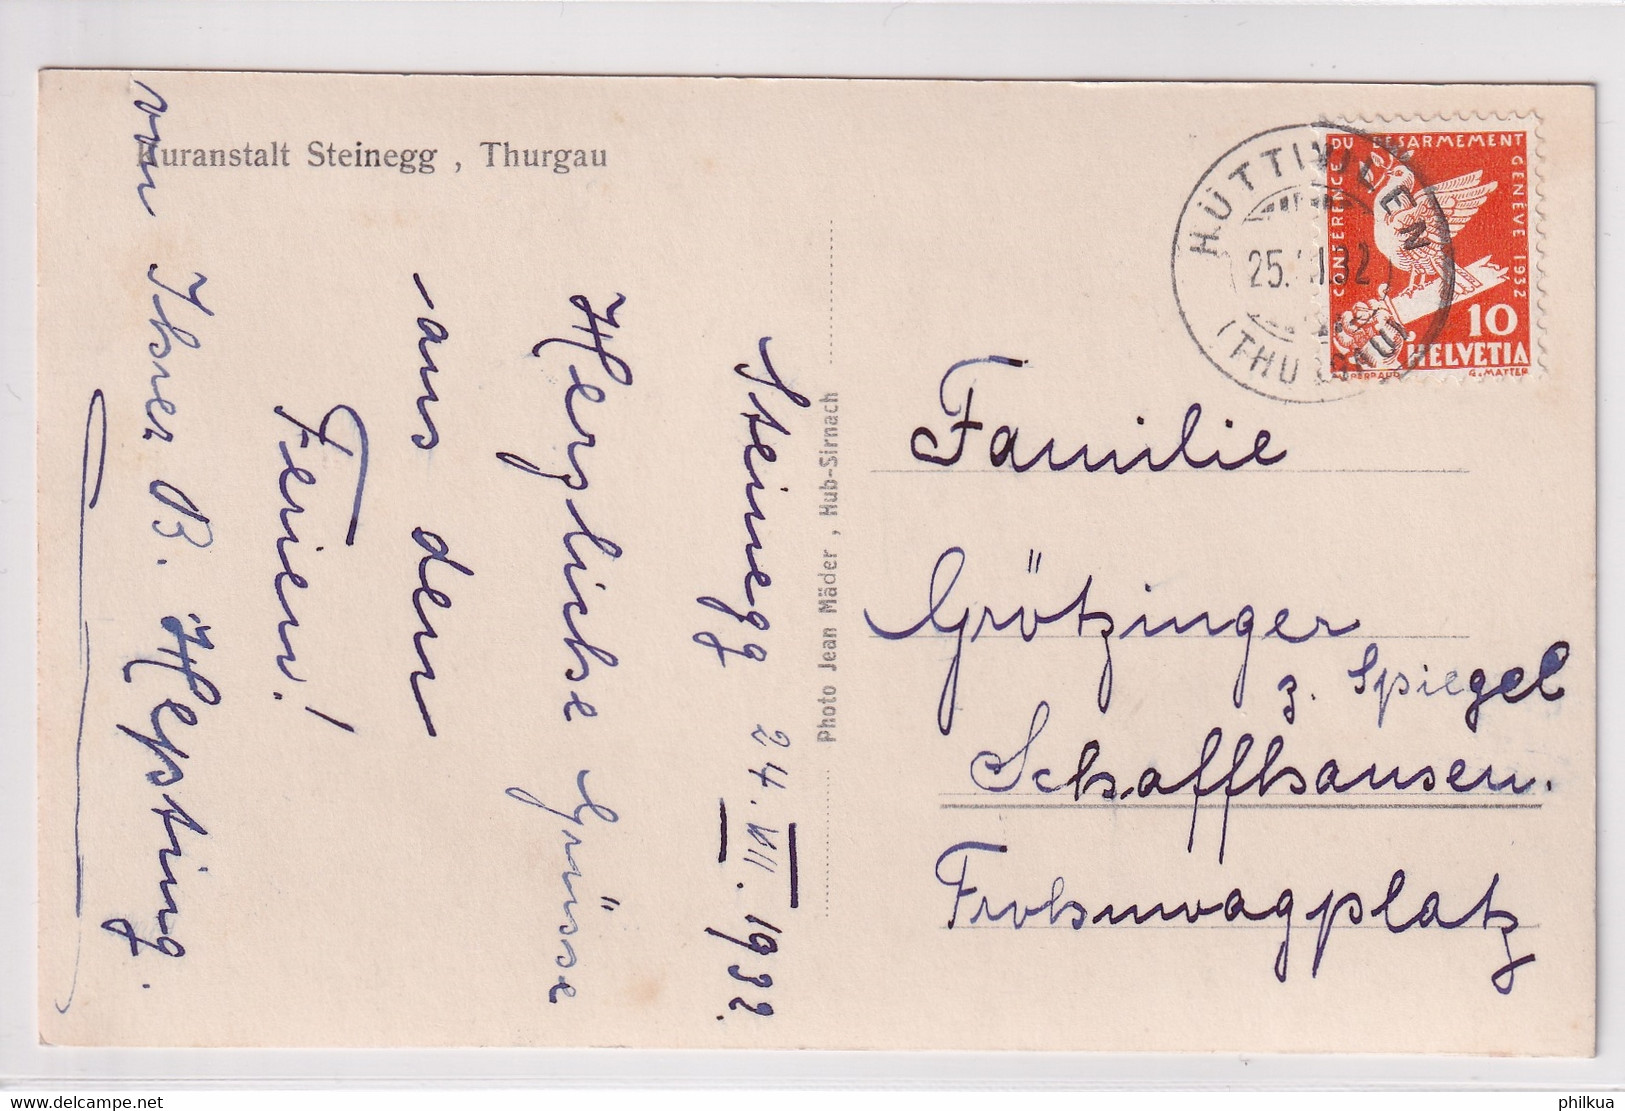 Kuranstalt Steinegg , Thurgau
Steinegg 24. VII. 1932.
Herzliche Grüsse
aus den
Ferien!
von Ihrer B. Hepting.
Photo Jean Mäder , Hub-Sirnach
HÜTTWILEN
25. 32
(THURGAU)
CONFERENCE DU DESARMEMENT GENEVE 1932
10
HELVETIA
G. MATTER
Familie
Grötzinger
z. Spiegel
Schaffhausen.
Frohnwagplatz
www.delcampe.net
philkua